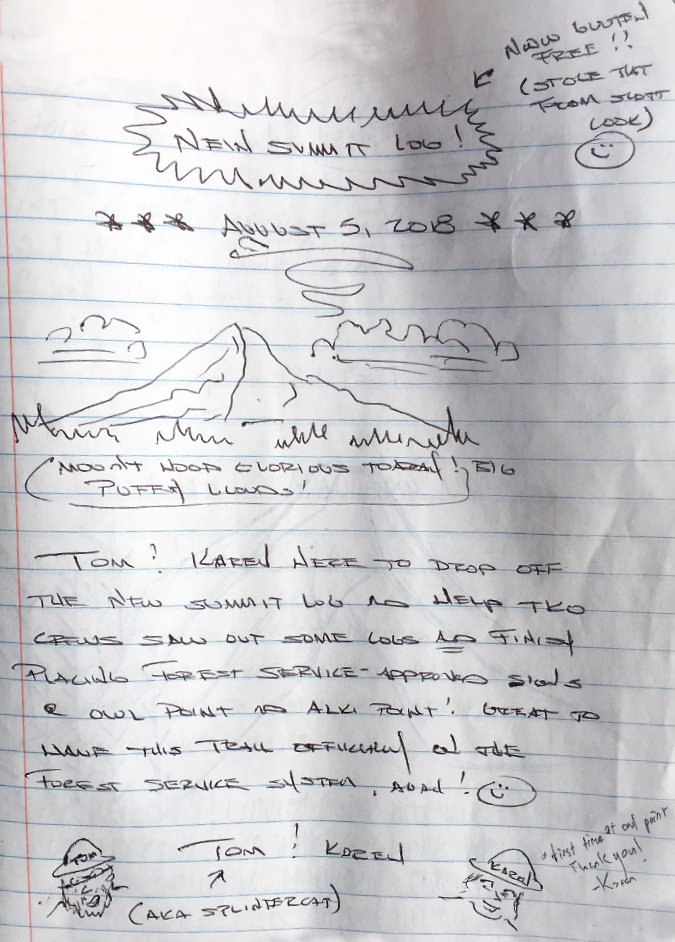 NOW GLUTEN
FREE!!
(STOLE THAT
FROM SCOTT
COOK)
NEW SUMMIT LOG!
*** AUGUST 5, 2018 ***
MOUNT HOOD GLORIOUS TODAY! BIG
PUFFY CLOUDS!
TOM & KAREN HERE TO DROP OFF
THE NEW SUMMIT LOG AND HELP TKO
CREWS SAW OUT SOME LOGS AND FINISH
PLACING FOREST SERVICE-APPROVED SIGNS
@ OWL POINT AND ALKI POINT! GREAT TO
HAVE THIS TRAIL OFFICIALLY ON THE
FOREST SERVICE SYSTEM, AGAIN!
TOM & KAREN
(AKA SPLINTERCAT)
TOM
KAREN
first time at owl point
Thank you!
-Karen